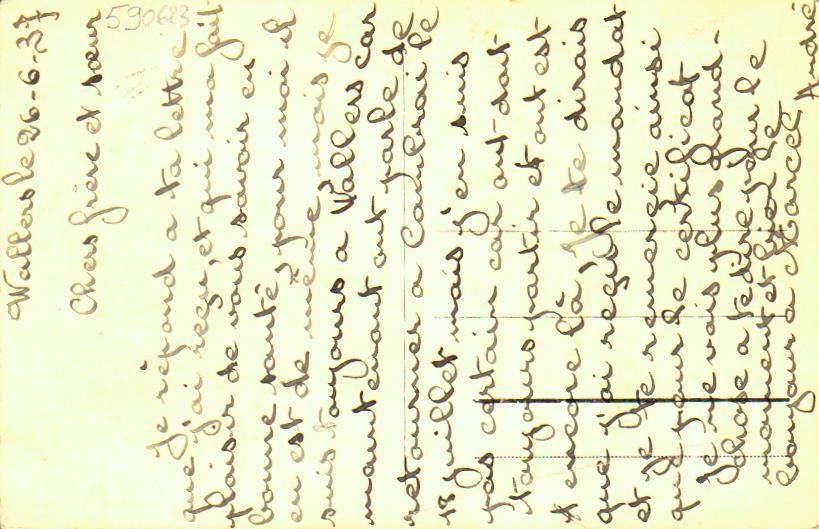 590623
Wallers le 26-6-37
Chers frère et sœur
Je répond a ta lettre
que j'ai reçu et qui ma fait
plaisir de vous savoir en
bonne santé, pour moi il
en est de même mais je
suis toujours a Wallers car
maintenant ont parle de
retourner a Cambrai le
13 juillet mais j'en suis
pas certain car ont doit
toujours partir et ont est
encore là. Je te dirais
que j'ai reçu le mandat
et je te remercie ainsi
que pour le certificat
Je ne vois plus grand-
chose a te dire pour le
moment et bien le
bonjour a Marcel André